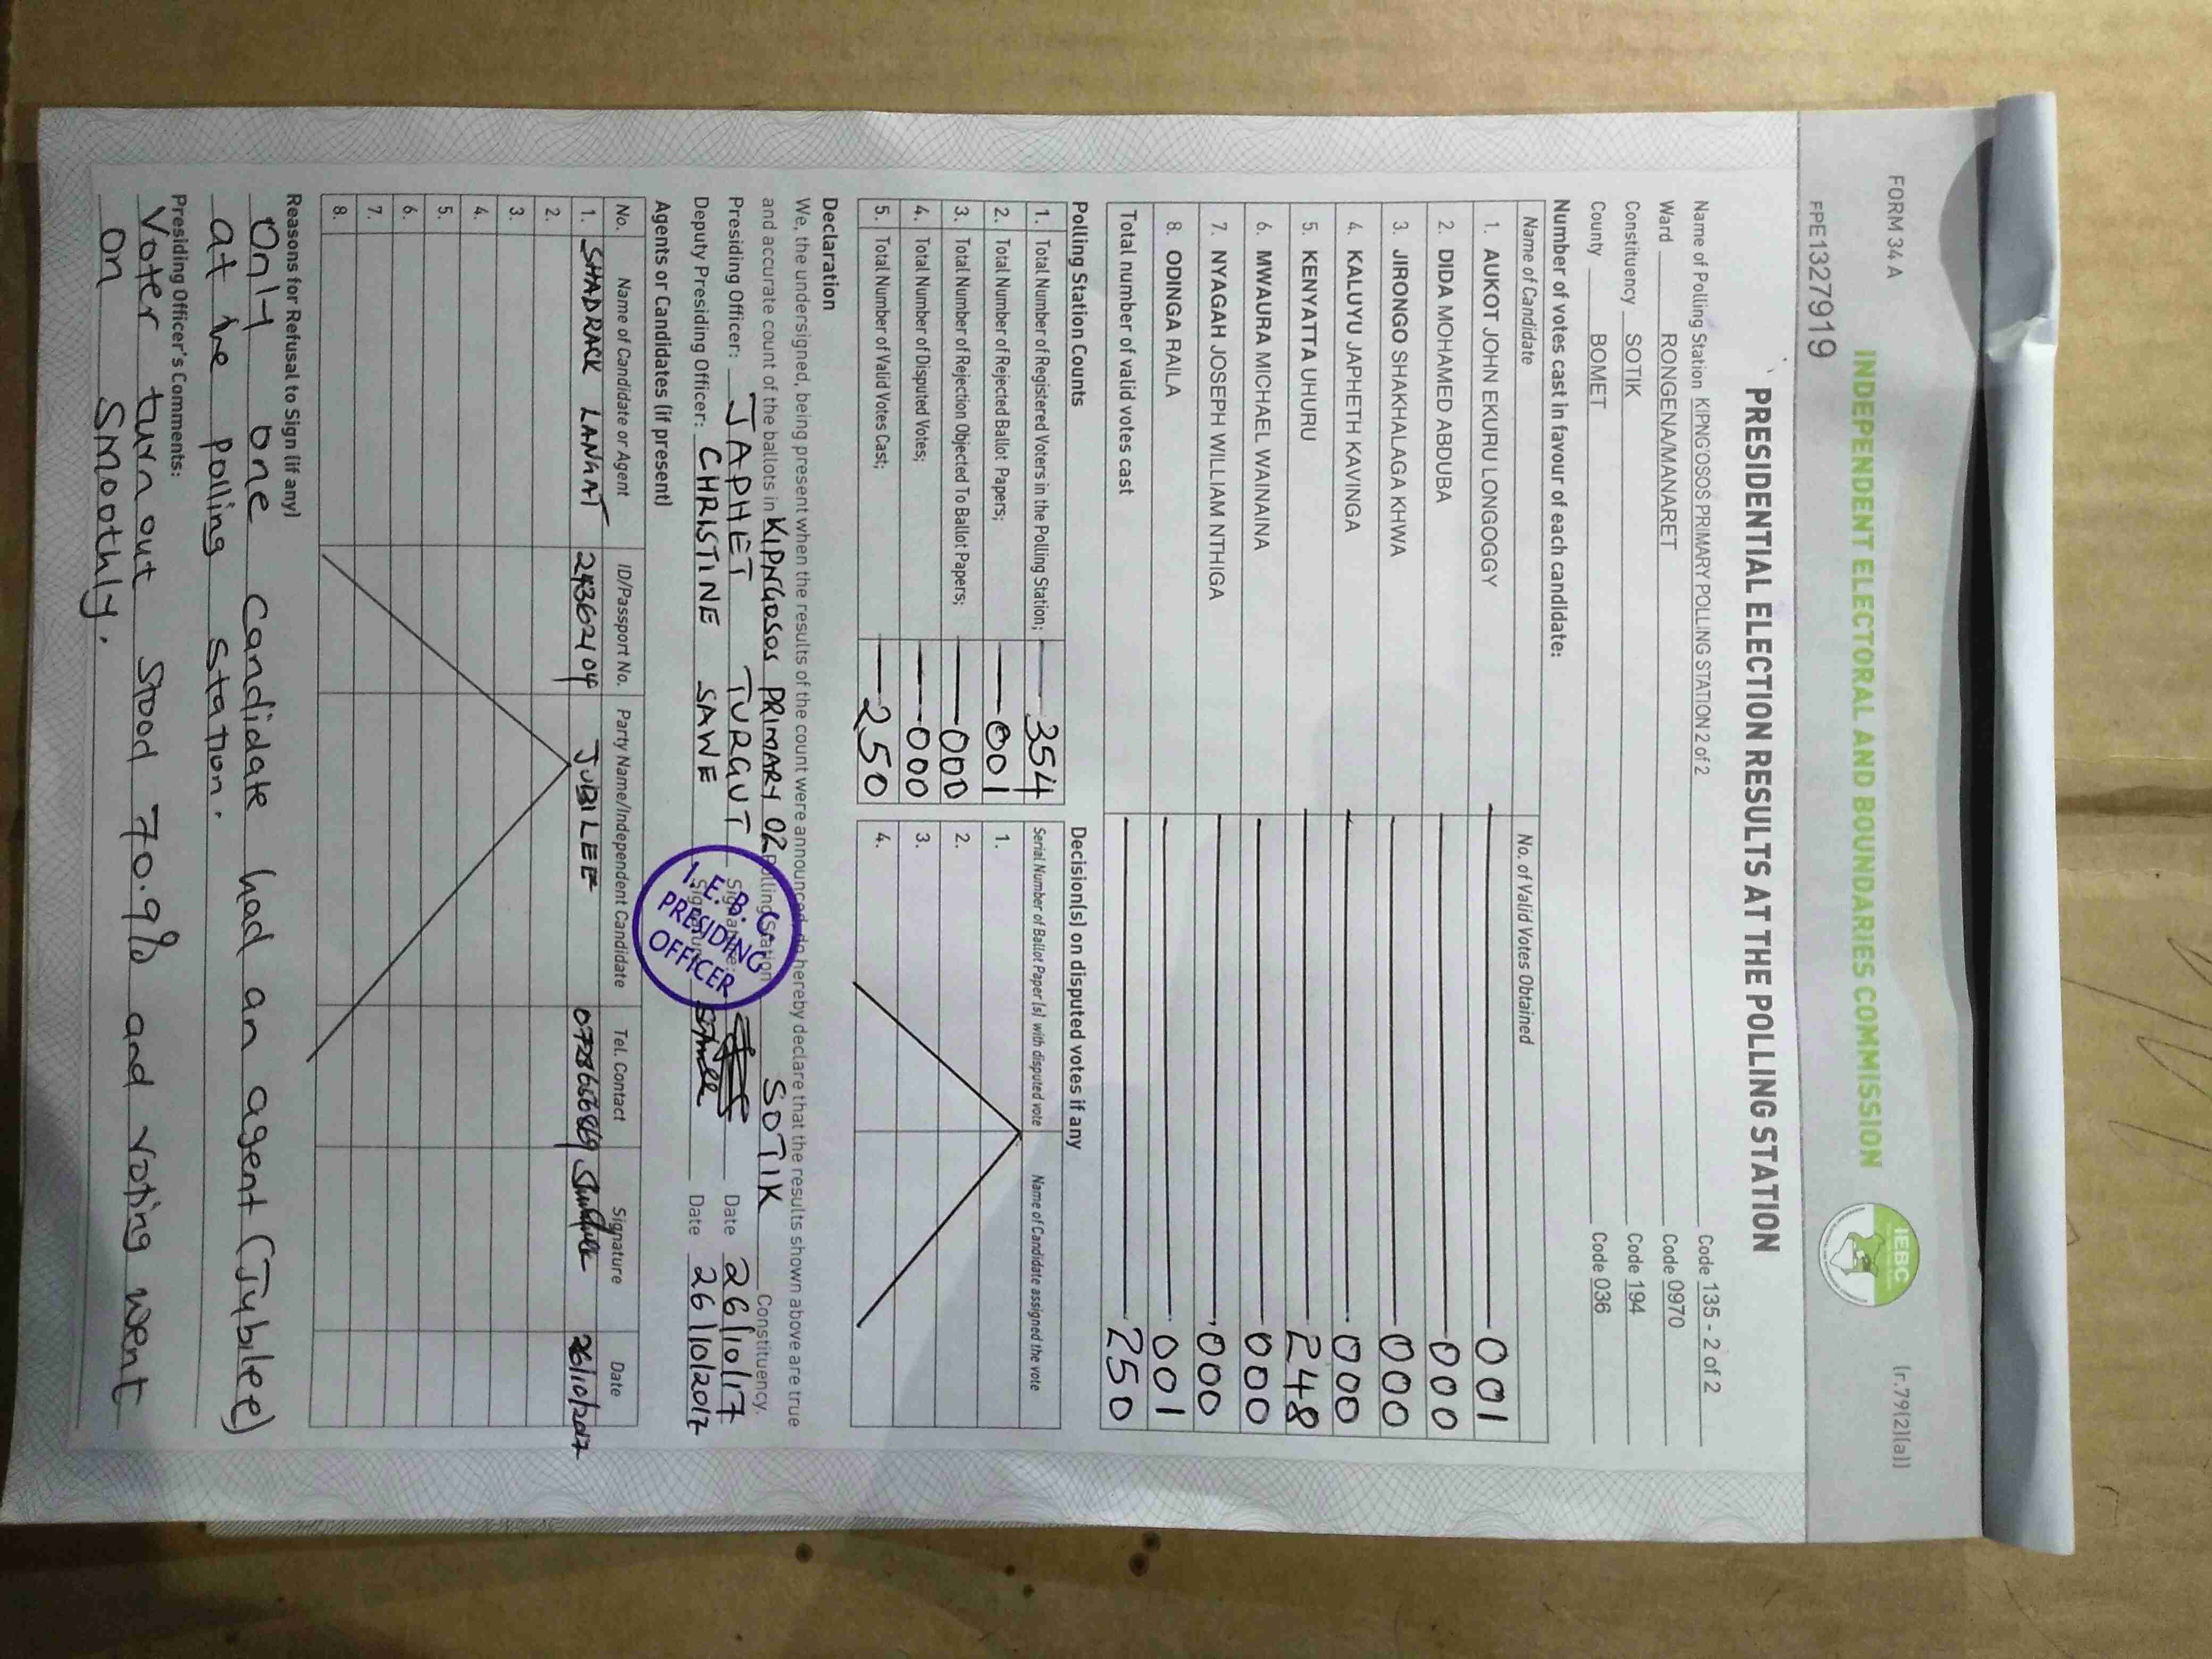 FORM 34 A
(r.79(2)(a))
INDEPENDENT ELECTORAL AND BOUNDARIES COMMISSION
IEBC
FPE1327919
PRESIDENTIAL ELECTION RESULTS AT THE POLLING STATION
Name of Polling Station KIPNG'OSOS PRIMARY POLLING STATION 2 of 2 Code 135 - 2 of 2
Ward RONGENA/MANARET Code 0970
Constituency SOTIK Code 194
County BOMET Code 036
Number of votes cast in favour of each candidate:
Name of Candidate No. of Valid Votes Obtained
1. AUKOT JOHN EKURU LONGOGGY 001
2. DIDA MOHAMED ABDUBA 000
3. JIRONGO SHAKHALAGA KHWA 000
4. KALUYU JAPHETH KAVINGA 000
5. KENYATTA UHURU 248
6. MWAURA MICHAEL WAINAINA 000
7. NYAGAH JOSEPH WILLIAM NTHIGA 000
8. ODINGA RAILA 001
Total number of valid votes cast 250
Polling Station Counts
1. Total Number of Registered Voters in the Polling Station; 354
2. Total Number of Rejected Ballot Papers; 001
3. Total Number of Rejection Objected To Ballot Papers; 000
4. Total Number of Disputed Votes; 000
5. Total Number of Valid Votes Cast; 250
Decision(s) on disputed votes if any
Serial Number of Ballot Paper (s) with disputed vote Name of Candidate assigned the vote
1.
2.
3.
4.
Declaration
We, the undersigned, being present when the results of the count were announced, do hereby declare that the results shown above are true
and accurate count of the ballots in KIPNGOSOS PRIMARY 02 Polling Station SOTIK Constituency.
Presiding Officer: JAPHET TURGUT Signature: Date 26/10/17
Deputy Presiding Officer: CHRISTINE SAWE Signature: Date 26/10/2017
I.E.B.C.
PRESIDING
OFFICER
Agents or Candidates (if present)
No. Name of Candidate or Agent ID/Passport No. Party Name/Independent Candidate Tel. Contact Signature Date
1. SHADRACK LANGAT JUBILEE 26/10/2017
2.
3.
4.
5.
6.
7.
8.
Reasons for Refusal to Sign (if any)
Only one candidate had an agent (Jubilee)
at he polling station.
Presiding Officer's Comments:
Voter turn out stood 70.9% and voting went
on smoothly.